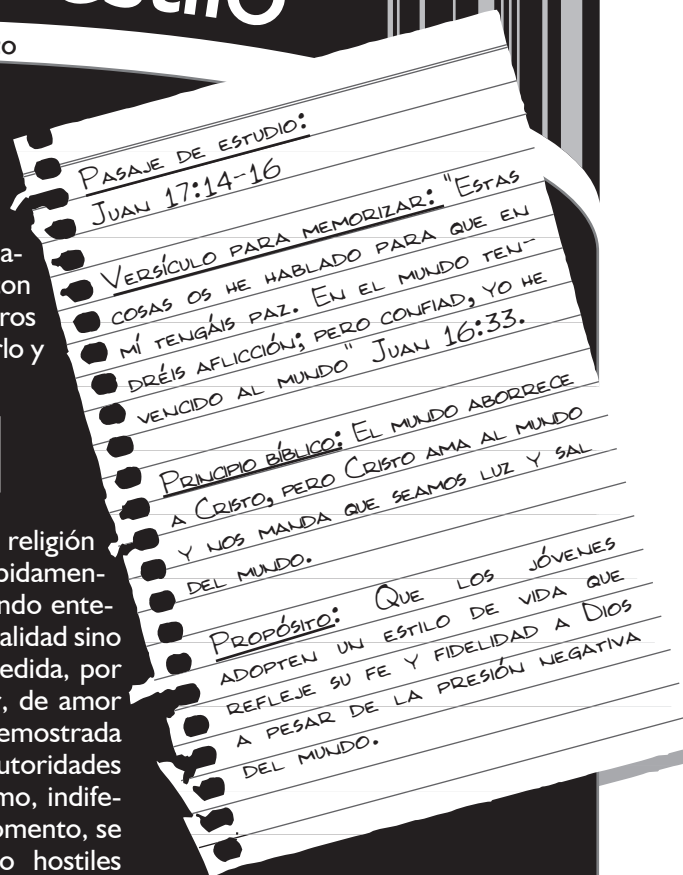 estilo
Pasaje de estudio:
Juan 17:14-16
Versículo para memorizar: "Estas
cosas os he hablado para que en
mí tengáis paz. En el mundo ten-
dréis aflicción; pero confiad, yo he
vencido al mundo" Juan 16:33.
Principio bíblico: El mundo aborrece
a Cristo, pero Cristo ama al mundo
y nos manda que seamos luz y sal
del mundo.
Propósito: Que los jóvenes
adopten un estilo de vida que
refleje su fe y fidelidad a Dios
a pesar de la presión negativa
del mundo.
a-
on
ros
rlo y
religión
pidamen-
ndo ente-
alidad sino
edida, por
, de amor
emostrada
utoridades
mo, indife-
omento, se
o hostiles